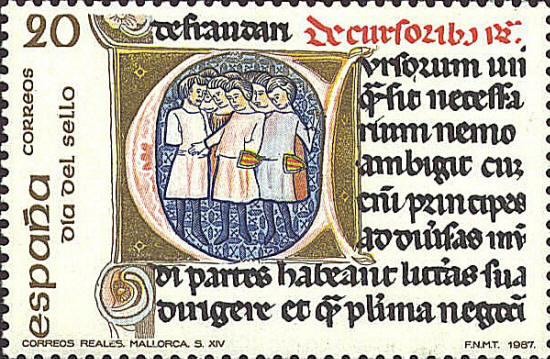 20
CORREOS
españa
DIA del sello
defraudari De cursorib
Cursorum
q̄ sit necessa
rium nemo
ambigit cuz
cū principes
ad diūsas mū
di partes habeant l̄ras sua
dirigere et q̄ pl̄ima negoci
CORREOS REALES. MALLORCA. S. XIV
F.N.M.T. 1987.